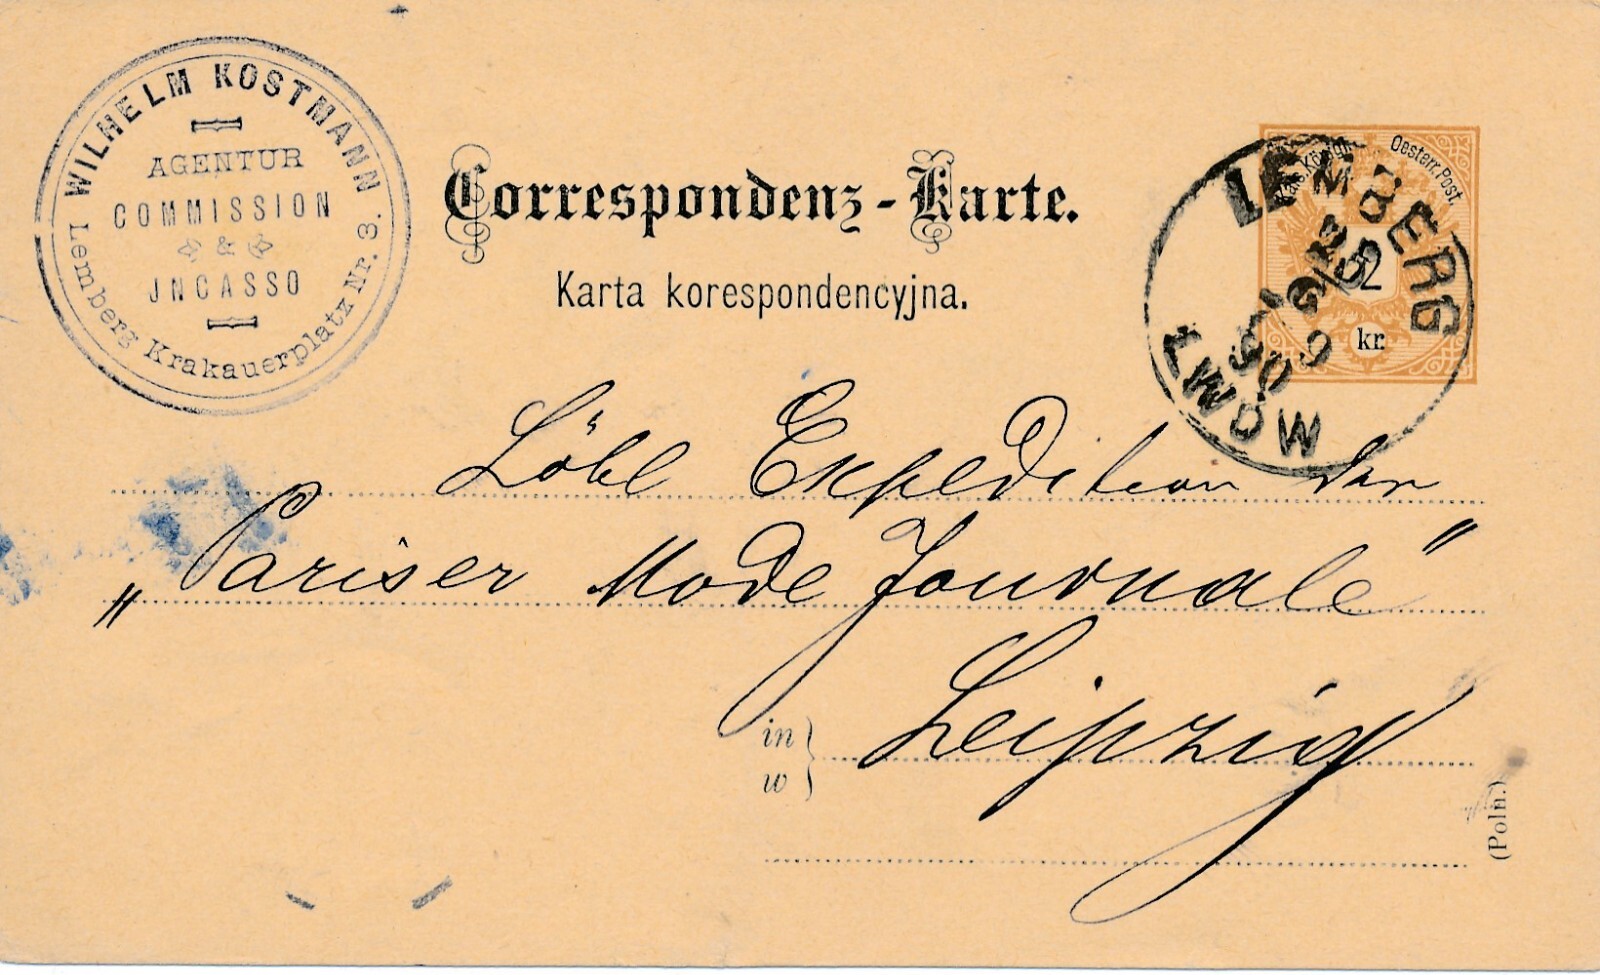 WILHELM KOSTMANN
AGENTUR
COMMISSION
&
JNCASSO
Lemberg Krakauerplatz Nr. 3.
Correspondenz-Karte.
Karta korespondencyjna.
Kais. Königl. Oesterr. Post.
2
kr.
LEMBERG
LWÓW
Löbl Expedition der
„Pariser Mode Journale"
in
w
Leipzig
(Poln.)